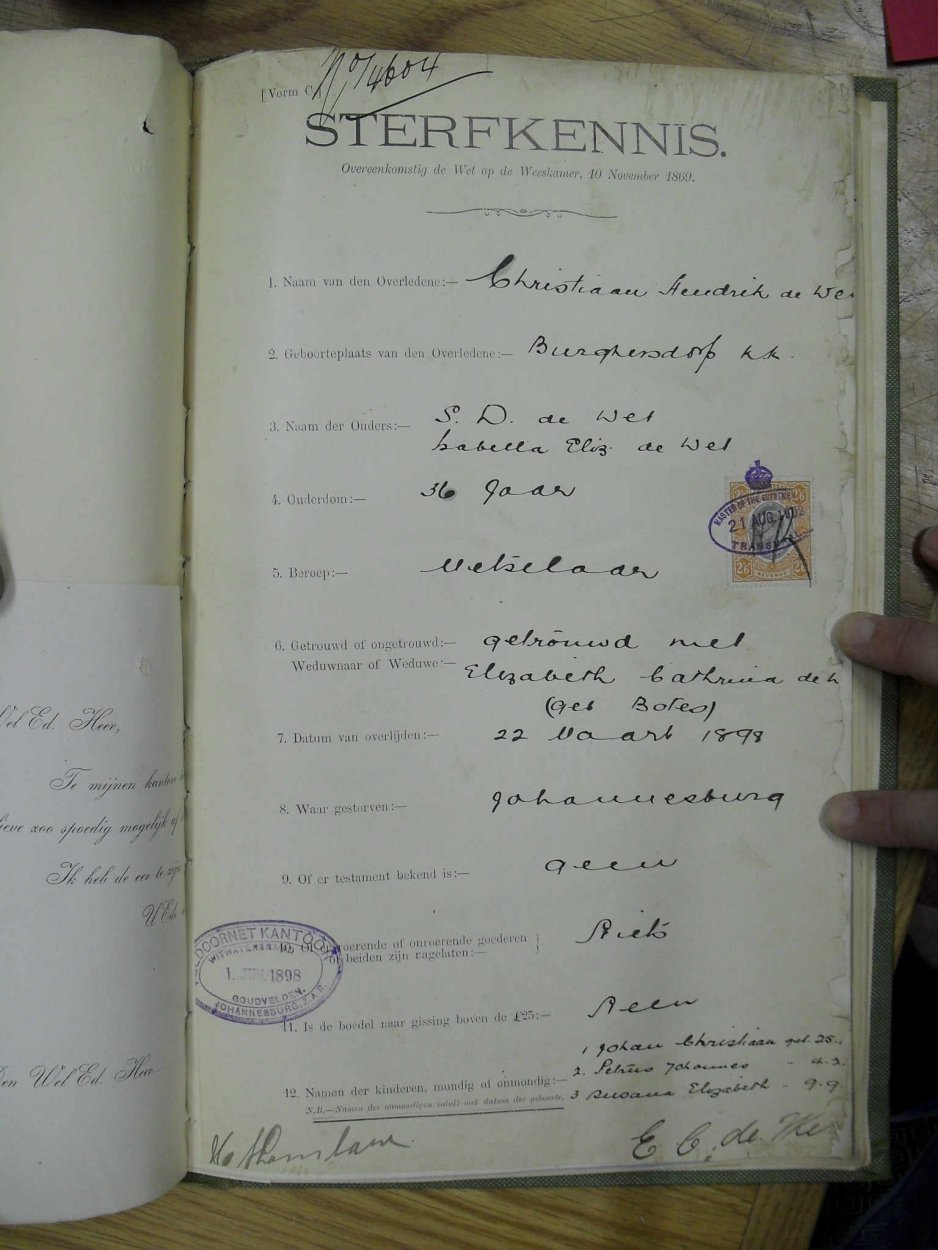 No 4604
[Vorm C.]
STERFKENNIS.
Overeenkomstig de Wet op de Weeskamer, 10 November 1869.
1. Naam van den Overledene:— Christiaan Hendrik de We
2. Geboorteplaats van den Overledene:— Burghersdorp k.k.
3. Naam der Ouders:— S. D. de Wet
Isabella Eliz. de Wet
4. Ouderdom:— 36 Jaar
MASTER OF THE SUPREME
21 AUG 1902
TRANSVAAL
2/6 REVENUE 2/6
5. Beroep:— Metselaar
6. Getrouwd of ongetrouwd:— getrouwd met
Weduwnaar of Weduwe:— Elizabeth Cathrina de
(geb Botes)
7. Datum van overlijden:— 22 Maart 1898
Wel Ed. Heer,
8. Waar gestorven:— Johannesburg
Te mijnen kantore
zoo spoedig mogelijk
9. Of er testament bekend is:— geen
Ik heb de eer te zijn
UEds
10. Of er roerende of onroerende goederen
of beiden zijn nagelaten:— Niets
KANTOOR
WITWATERSRAND
1 JUN. 1898
GOUDVELDEN.
JOHANNESBURG, Z.A.R.
11. Is de boedel naar gissing boven de £25:— Neen
1 Johan Christiaan geb. 25.
2. Petrus Johannes - 4.2.
12. Namen der kinderen, mondig of onmondig:— 3 Susana Elizabeth - 9.9.
N.B.—Namen der onmondigen voluit met datum der geboorte.
Den Wel Ed. Heer
E C. de We